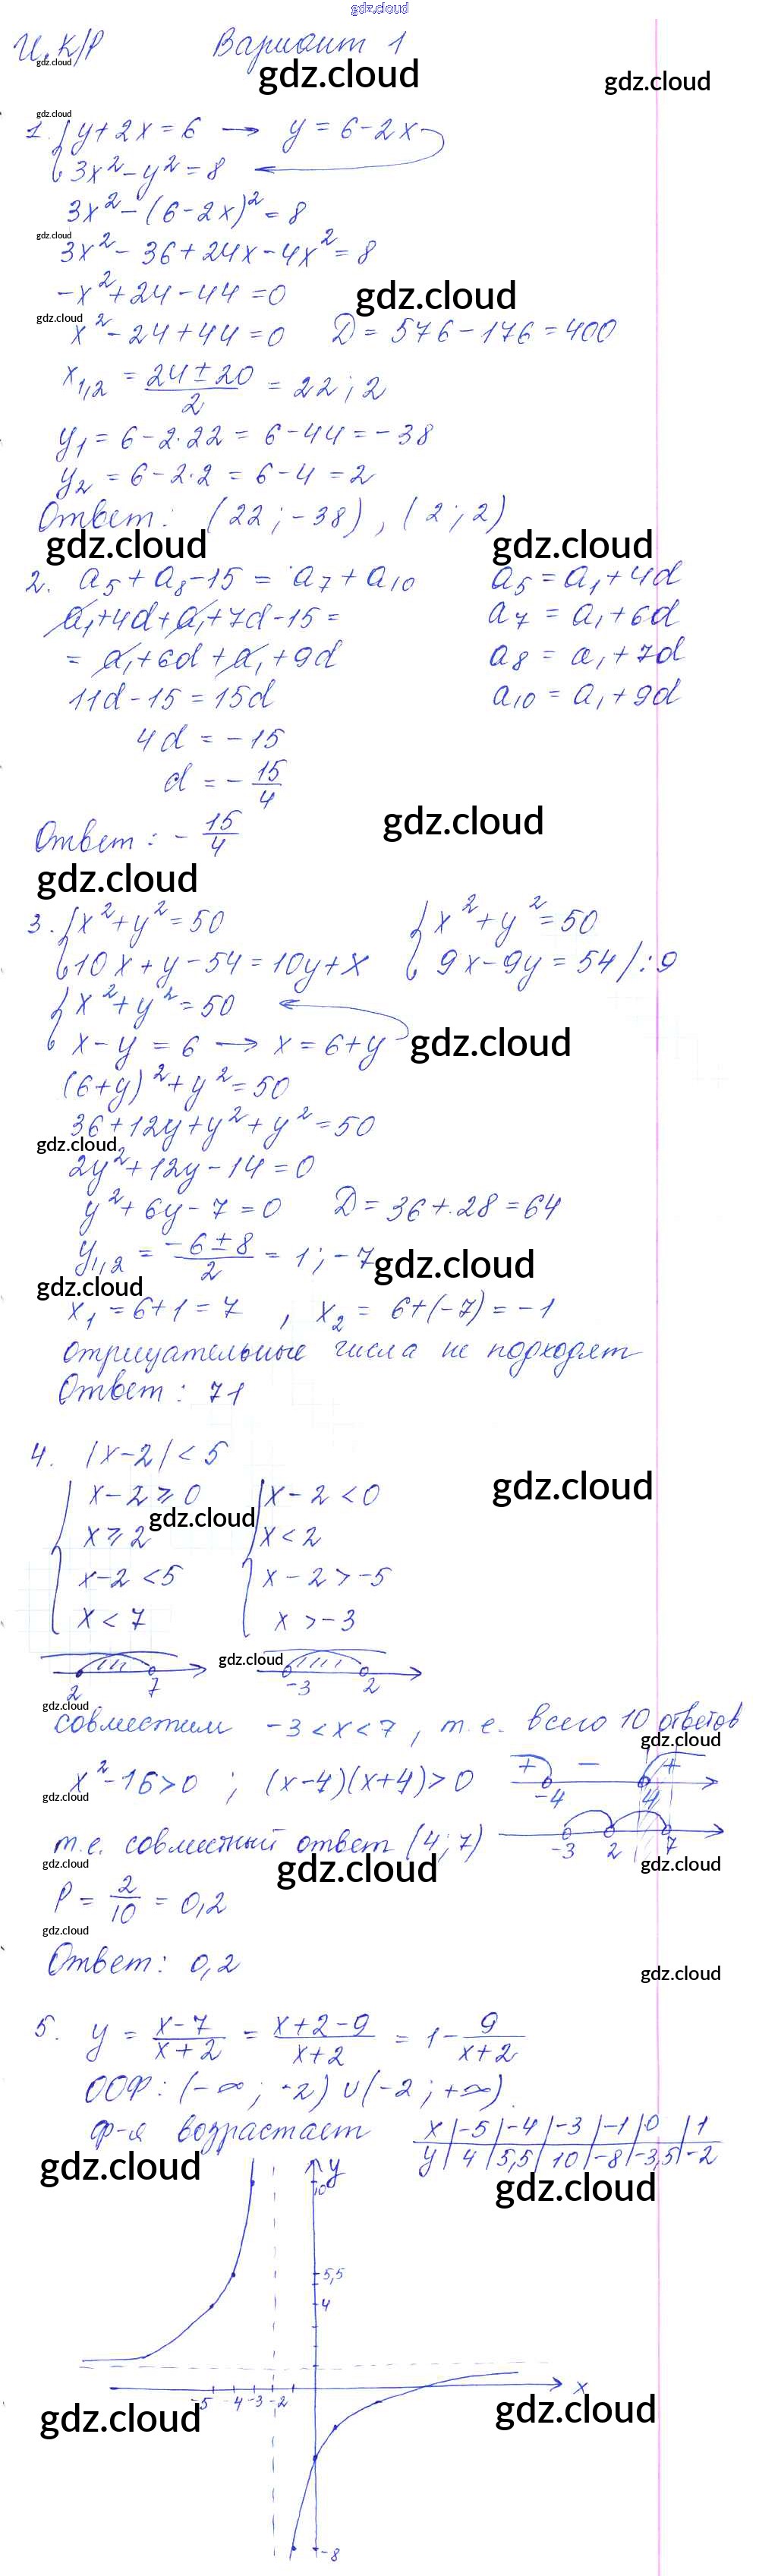 gdz.cloud
И. К/Р Вариант 1
gdz.cloud
gdz.cloud gdz.cloud
gdz.cloud
1. { y+2x=6 → y=6-2x
3x²-y²=8
3x²-(6-2x)²=8
gdz.cloud
3x²-36+24x-4x²=8
-x²+24-44=0
gdz.cloud
gdz.cloud
x²-24+44=0 D=576-176=400
x₁,₂ = (24±20)/2 = 22; 2
y₁=6-2·22=6-44=-38
y₂=6-2·2=6-4=2
Ответ: (22;-38), (2;2)
gdz.cloud gdz.cloud
2. a₅+a₈-15=a₇+a₁₀ a₅=a₁+4d
a₁+4d+a₁+7d-15= a₇=a₁+6d
=a₁+6d+a₁+9d a₈=a₁+7d
11d-15=15d a₁₀=a₁+9d
4d=-15
d=-15/4
Ответ: -15/4
gdz.cloud
gdz.cloud
3. { x²+y²=50 { x²+y²=50
10x+y-54=10y+x 9x-9y=54 /:9
{ x²+y²=50
x-y=6 → x=6+y
gdz.cloud
(6+y)²+y²=50
36+12y+y²+y²=50
gdz.cloud
2y²+12y-14=0
y²+6y-7=0 D=36+.28=64
y₁,₂ = (-6±8)/2 = 1; -7
gdz.cloud
gdz.cloud
x₁=6+1=7, x₂=6+(-7)=-1
отрицательные числа не подходят
Ответ: 71
4. |x-2|<5
gdz.cloud
{ x-2≥0 { x-2<0
gdz.cloud
x≥2 x<2
x-2<5 x-2>-5
x<7 x>-3
gdz.cloud
2 7 -3 2
gdz.cloud
совместим -3<x<7, т.е. всего 10 ответов
gdz.cloud
x²-16>0; (x-4)(x+4)>0 + - +
gdz.cloud
-4 4
т.е. совместный ответ (4;7) -3 2 7
gdz.cloud gdz.cloud gdz.cloud
P = 2/10 = 0,2
gdz.cloud
Ответ: 0,2
gdz.cloud
5. y = (x-7)/(x+2) = (x+2-9)/(x+2) = 1 - 9/(x+2)
ООФ: (-∞; -2)∪(-2; +∞)
ф-я возрастает x | -5 | -4 | -3 | -1 | 0 | 1
y | 4 | 5,5 | 10 | -8 | -3,5 | -2
gdz.cloud
gdz.cloud
y
10
5,5
4
x
-5 -4 -3 -2
gdz.cloud gdz.cloud
-8